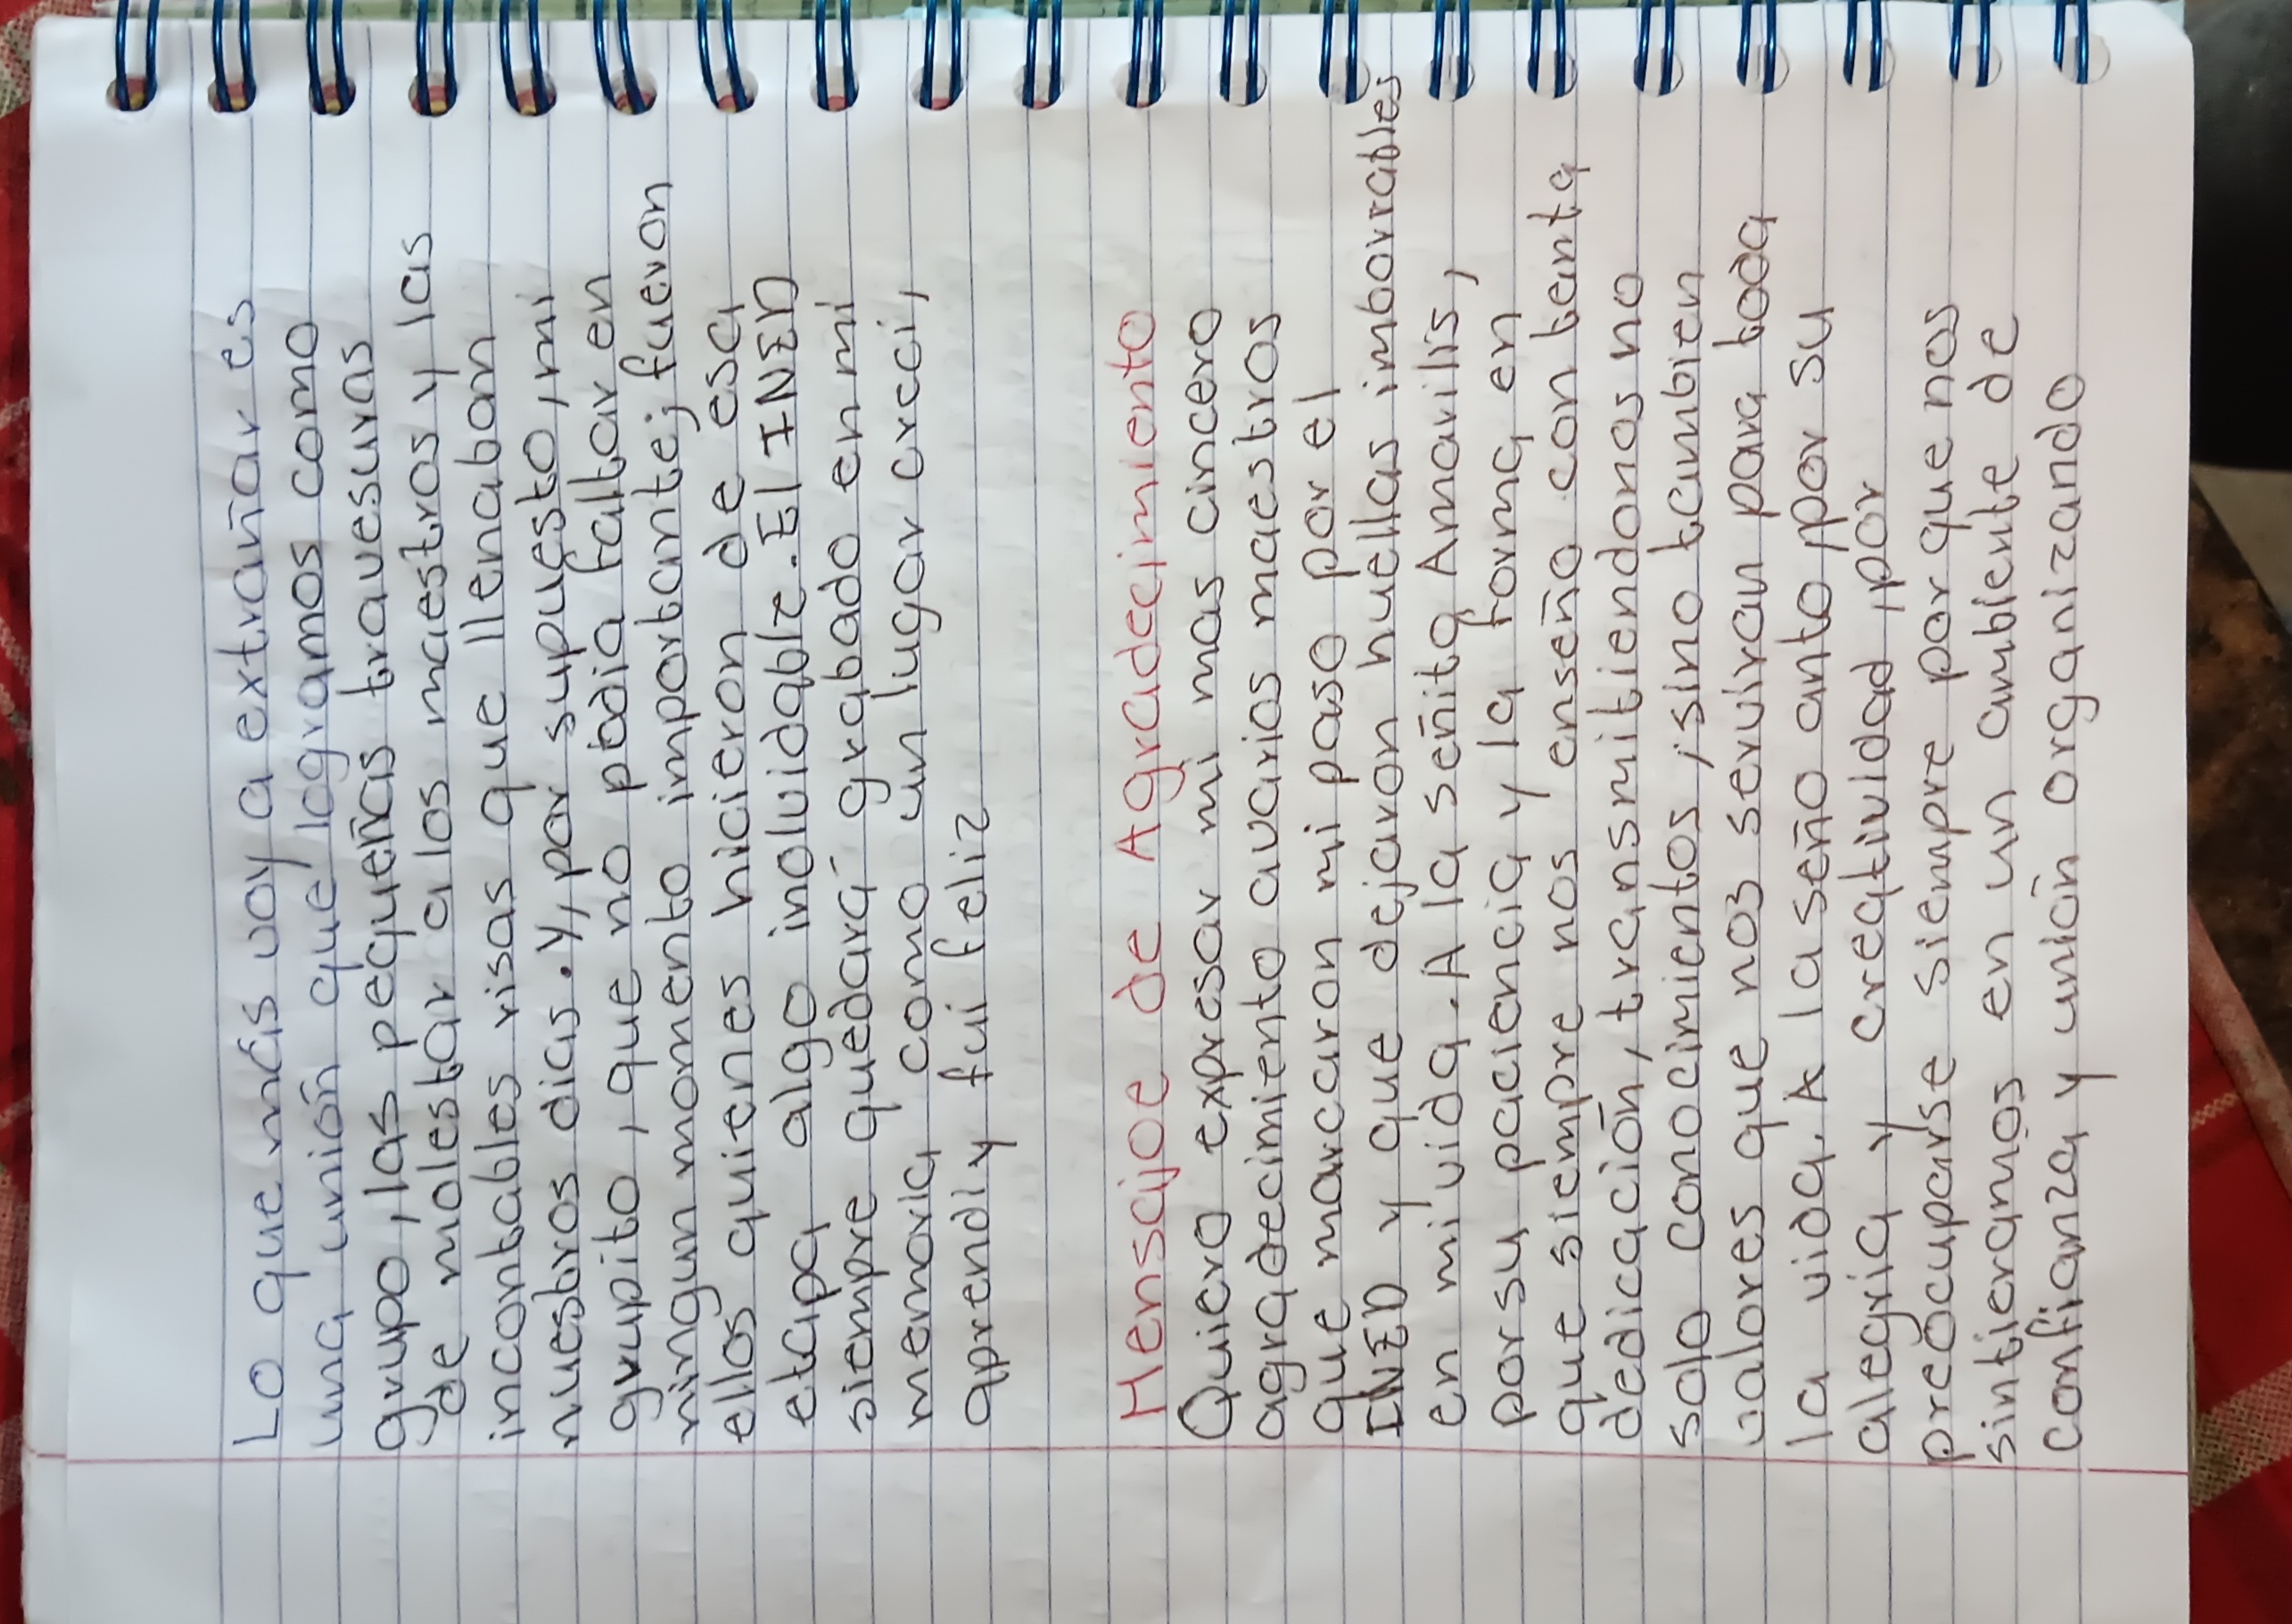 Lo que más voy a extrañar es
una unión que logramos como
grupo, las pequeñas travesuras
de molestar a los maestros y las
incontables risas que llenaban
nuestros dias. Y, por supuesto, mi
grupito, que no podia faltar en
ningun momento importante; fueron
ellos quienes hicieron de esa
etapa algo inoluidable. El INED
siempre quedará grabado en mi
memoria como un lugar creci,
aprendi y fui feliz
Mensajoe de Agradecimiento
Quiero expresar mi mas cincero
agradecimiento avarios maestros
que marcaron mi paso por el
INED y que dejaron huellas imborrables
en mi vida. A la señita Amarilis,
porsu paciencia y la forma en
que siempre nos enseño con tanta
dedicación, transmitiendonos no
solo conocimientos, sino tambien
valores que nos serviran para toda
la vida. A la seño anto, por su
alegria y creatividad, por
preocuparse siempre por que nos
sintieramos en un ambiente de
confianza y unión organizando